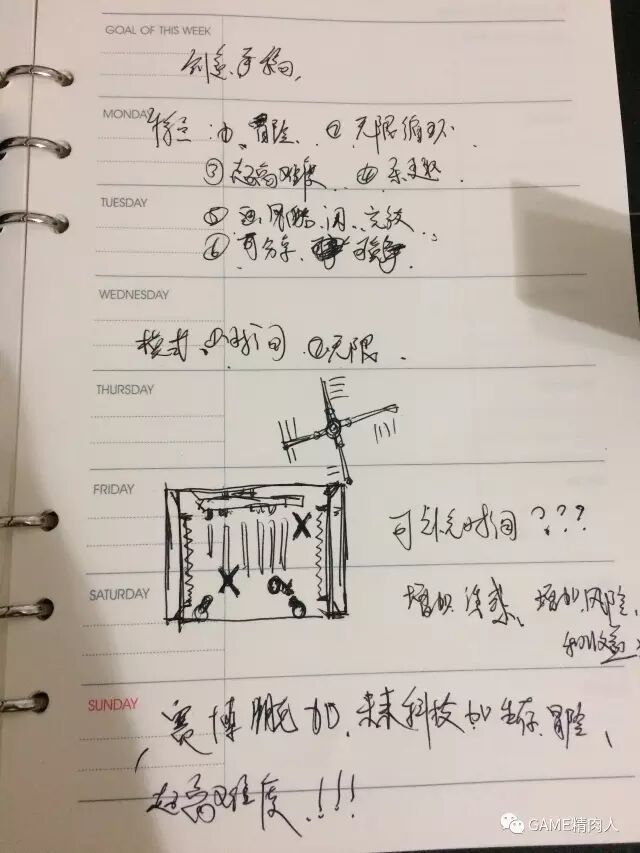 GOAL OF THIS WEEK
创意手稿
MONDAY
特点:①、冒险 ②无限循环
③超高难度 ④
TUESDAY
⑤
⑥可分享、可竞争.
WEDNESDAY
模式、①时间 ②无限.
THURSDAY
FRIDAY
可补充时间???
SATURDAY
增加 增加风险,
和收益
SUNDAY
赛博朋加、未来科技加生存冒险、
超高难度.!!!
GAME精肉人